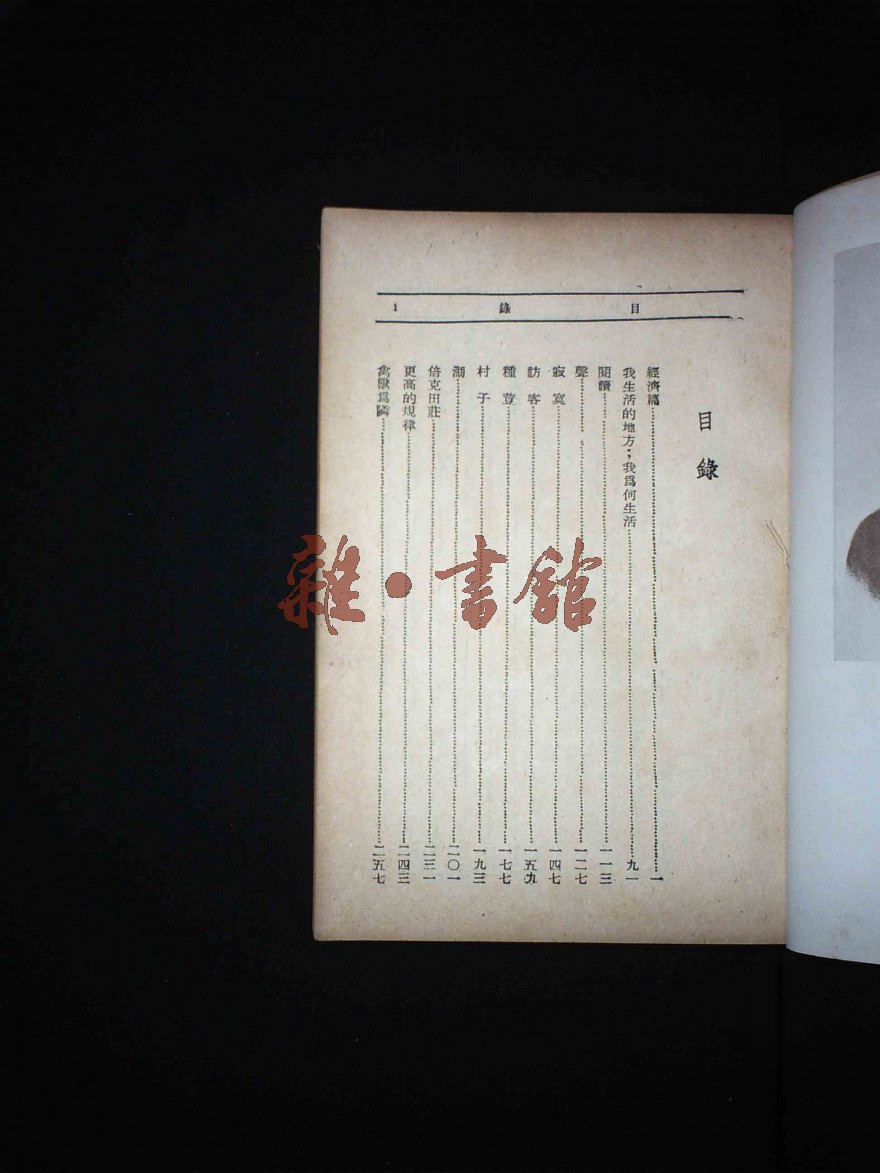 目錄 1
目錄
經濟篇……一
我生活的地方；我爲何生活……九一
閱讀……一一三
聲……一二七
寂寞……一四七
訪客……一五九
種荳……一七七
村子……一九三
湖……二〇一
倍克田莊……二三一
更高的規律……二四三
禽獸爲隣……二五七
雜·書館